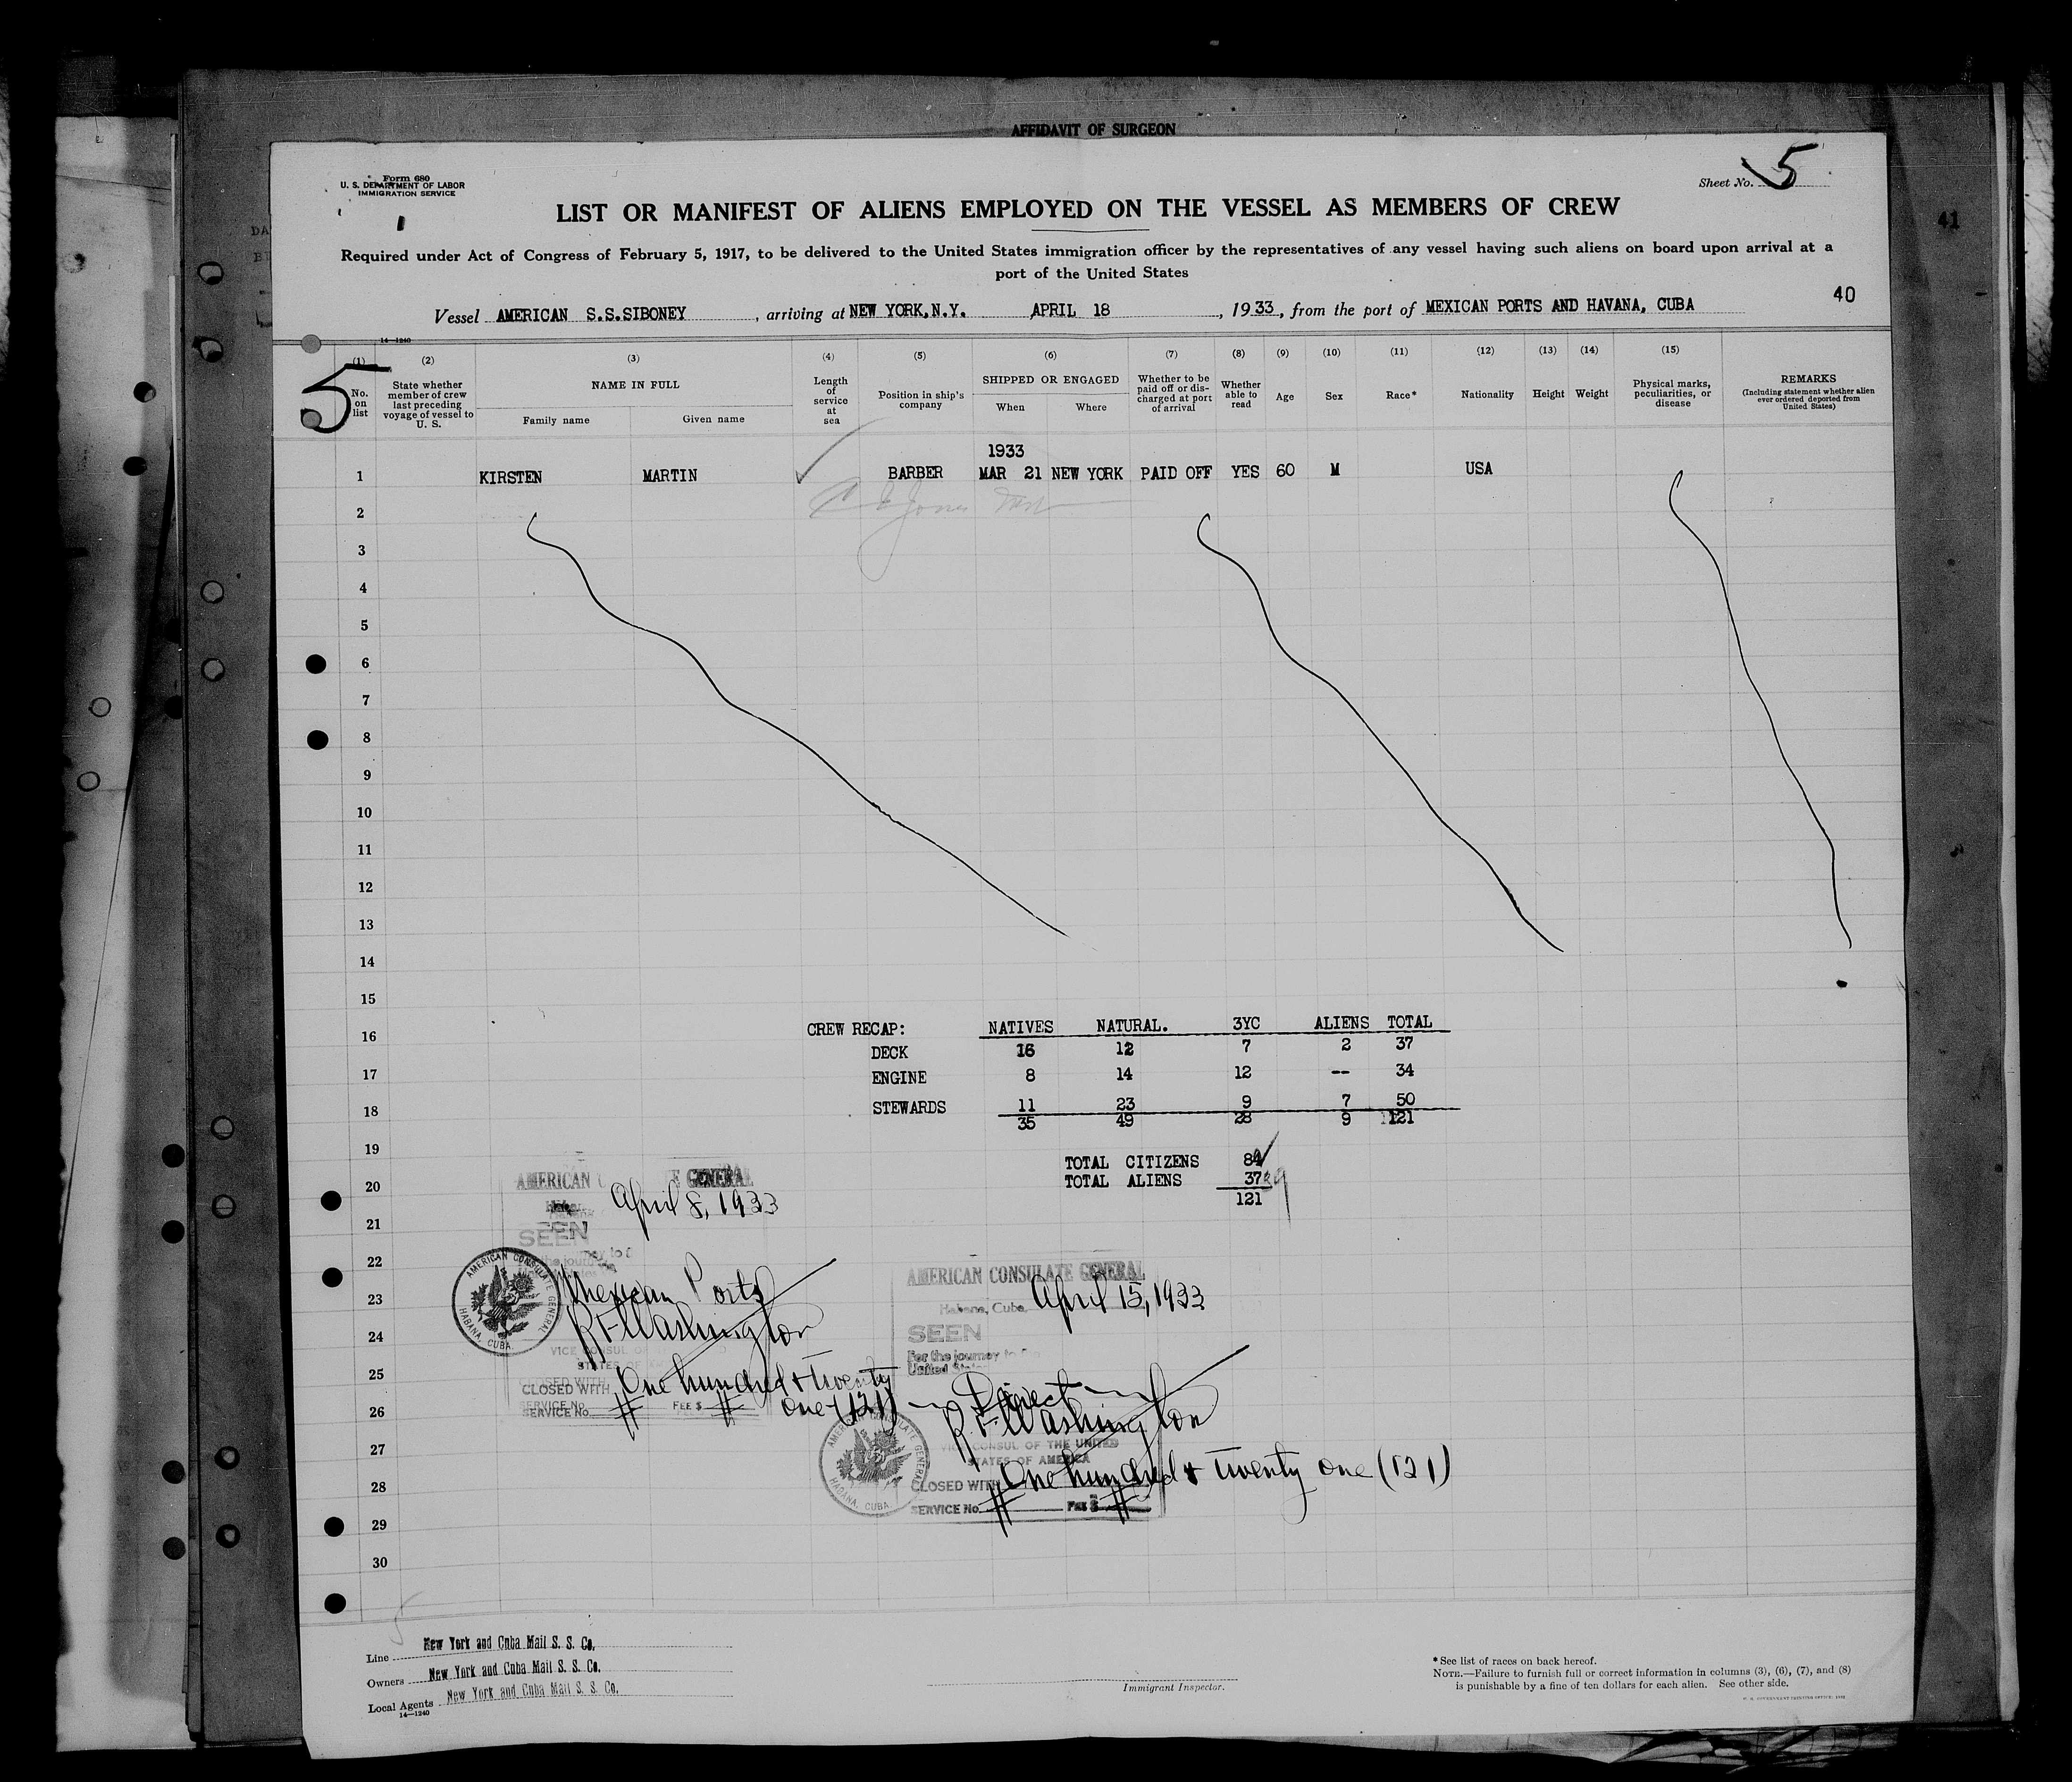 AFFIDAVIT OF SURGEON
Form 680
U. S. DEPARTMENT OF LABOR
IMMIGRATION SERVICE
Sheet No. 5
LIST OR MANIFEST OF ALIENS EMPLOYED ON THE VESSEL AS MEMBERS OF CREW
41
Required under Act of Congress of February 5, 1917, to be delivered to the United States immigration officer by the representatives of any vessel having such aliens on board upon arrival at a
port of the United States
40
Vessel AMERICAN S.S.SIBONEY, arriving at NEW YORK,N.Y. APRIL 18, 1933, from the port of MEXICAN PORTS AND HAVANA, CUBA
14—1240
5
(1) (2) (3) (4) (5) (6) (7) (8) (9) (10) (11) (12) (13) (14) (15)
No. on list
State whether member of crew last preceding voyage of vessel to U. S.
NAME IN FULL
Family name
Given name
Length of service at sea
Position in ship's company
SHIPPED OR ENGAGED
When
Where
Whether to be paid off or discharged at port of arrival
Whether able to read
Age
Sex
Race*
Nationality
Height
Weight
Physical marks, peculiarities, or disease
REMARKS
(Including statement whether alien ever ordered deported from United States)
1933
1 KIRSTEN MARTIN BARBER MAR 21 NEW YORK PAID OFF YES 60 M USA
2
3
4
5
6
7
8
9
10
11
12
13
14
15
16
17
18
19
20
21
22
23
24
25
26
27
28
29
30
CREW RECAP: NATIVES NATURAL. 3YC ALIENS TOTAL
DECK 16 12 7 2 37
ENGINE 8 14 12 -- 34
STEWARDS 11 23 9 7 50
35 49 28 9 121
TOTAL CITIZENS 84
TOTAL ALIENS 37
121
AMERICAN GENERAL
April 8, 1933
SEEN
AMERICAN CONSULATE GENERAL
HABANA, CUBA.
Mexican Ports
R F Washington
VICE CONSUL
CLOSED WITH One hundred + twenty
one (121)
SERVICE No. # FEE $ #
AMERICAN CONSULATE GENERAL
Habana, Cuba, April 15, 1933
SEEN
For the journey to
United States
Direct
R. F. Washington
VICE CONSUL OF THE UNITED
STATES OF AMERICA
AMERICAN CONSULATE GENERAL
HABANA, CUBA.
CLOSED WITH One hundred + twenty one (121)
SERVICE No. # FEE $ #
Line New York and Cuba Mail S. S. Co.
Owners New York and Cuba Mail S. S. Co.
Local Agents New York and Cuba Mail S. S. Co.
14—1240
Immigrant Inspector.
*See list of races on back hereof.
NOTE.—Failure to furnish full or correct information in columns (3), (6), (7), and (8)
is punishable by a fine of ten dollars for each alien. See other side.